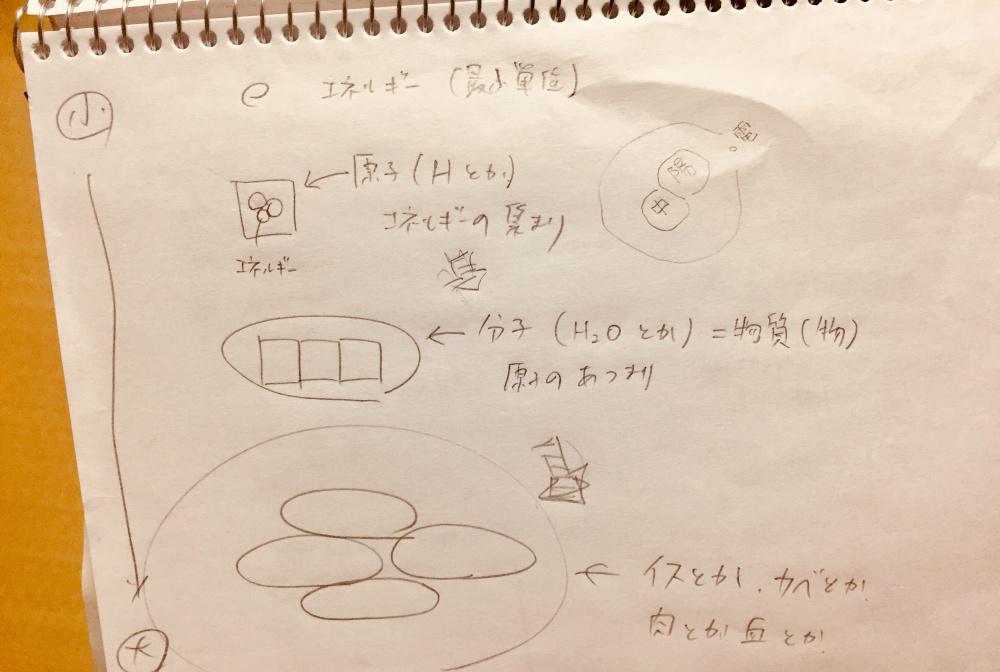 小
e エネルギー (最小単位)
電
陽
中
原子 (Hとか)
エネルギーの集まり
エネルギー
分子 (H₂Oとか) = 物質(物)
原子のあつまり
イスとか、カベとか
肉とか血とか
大